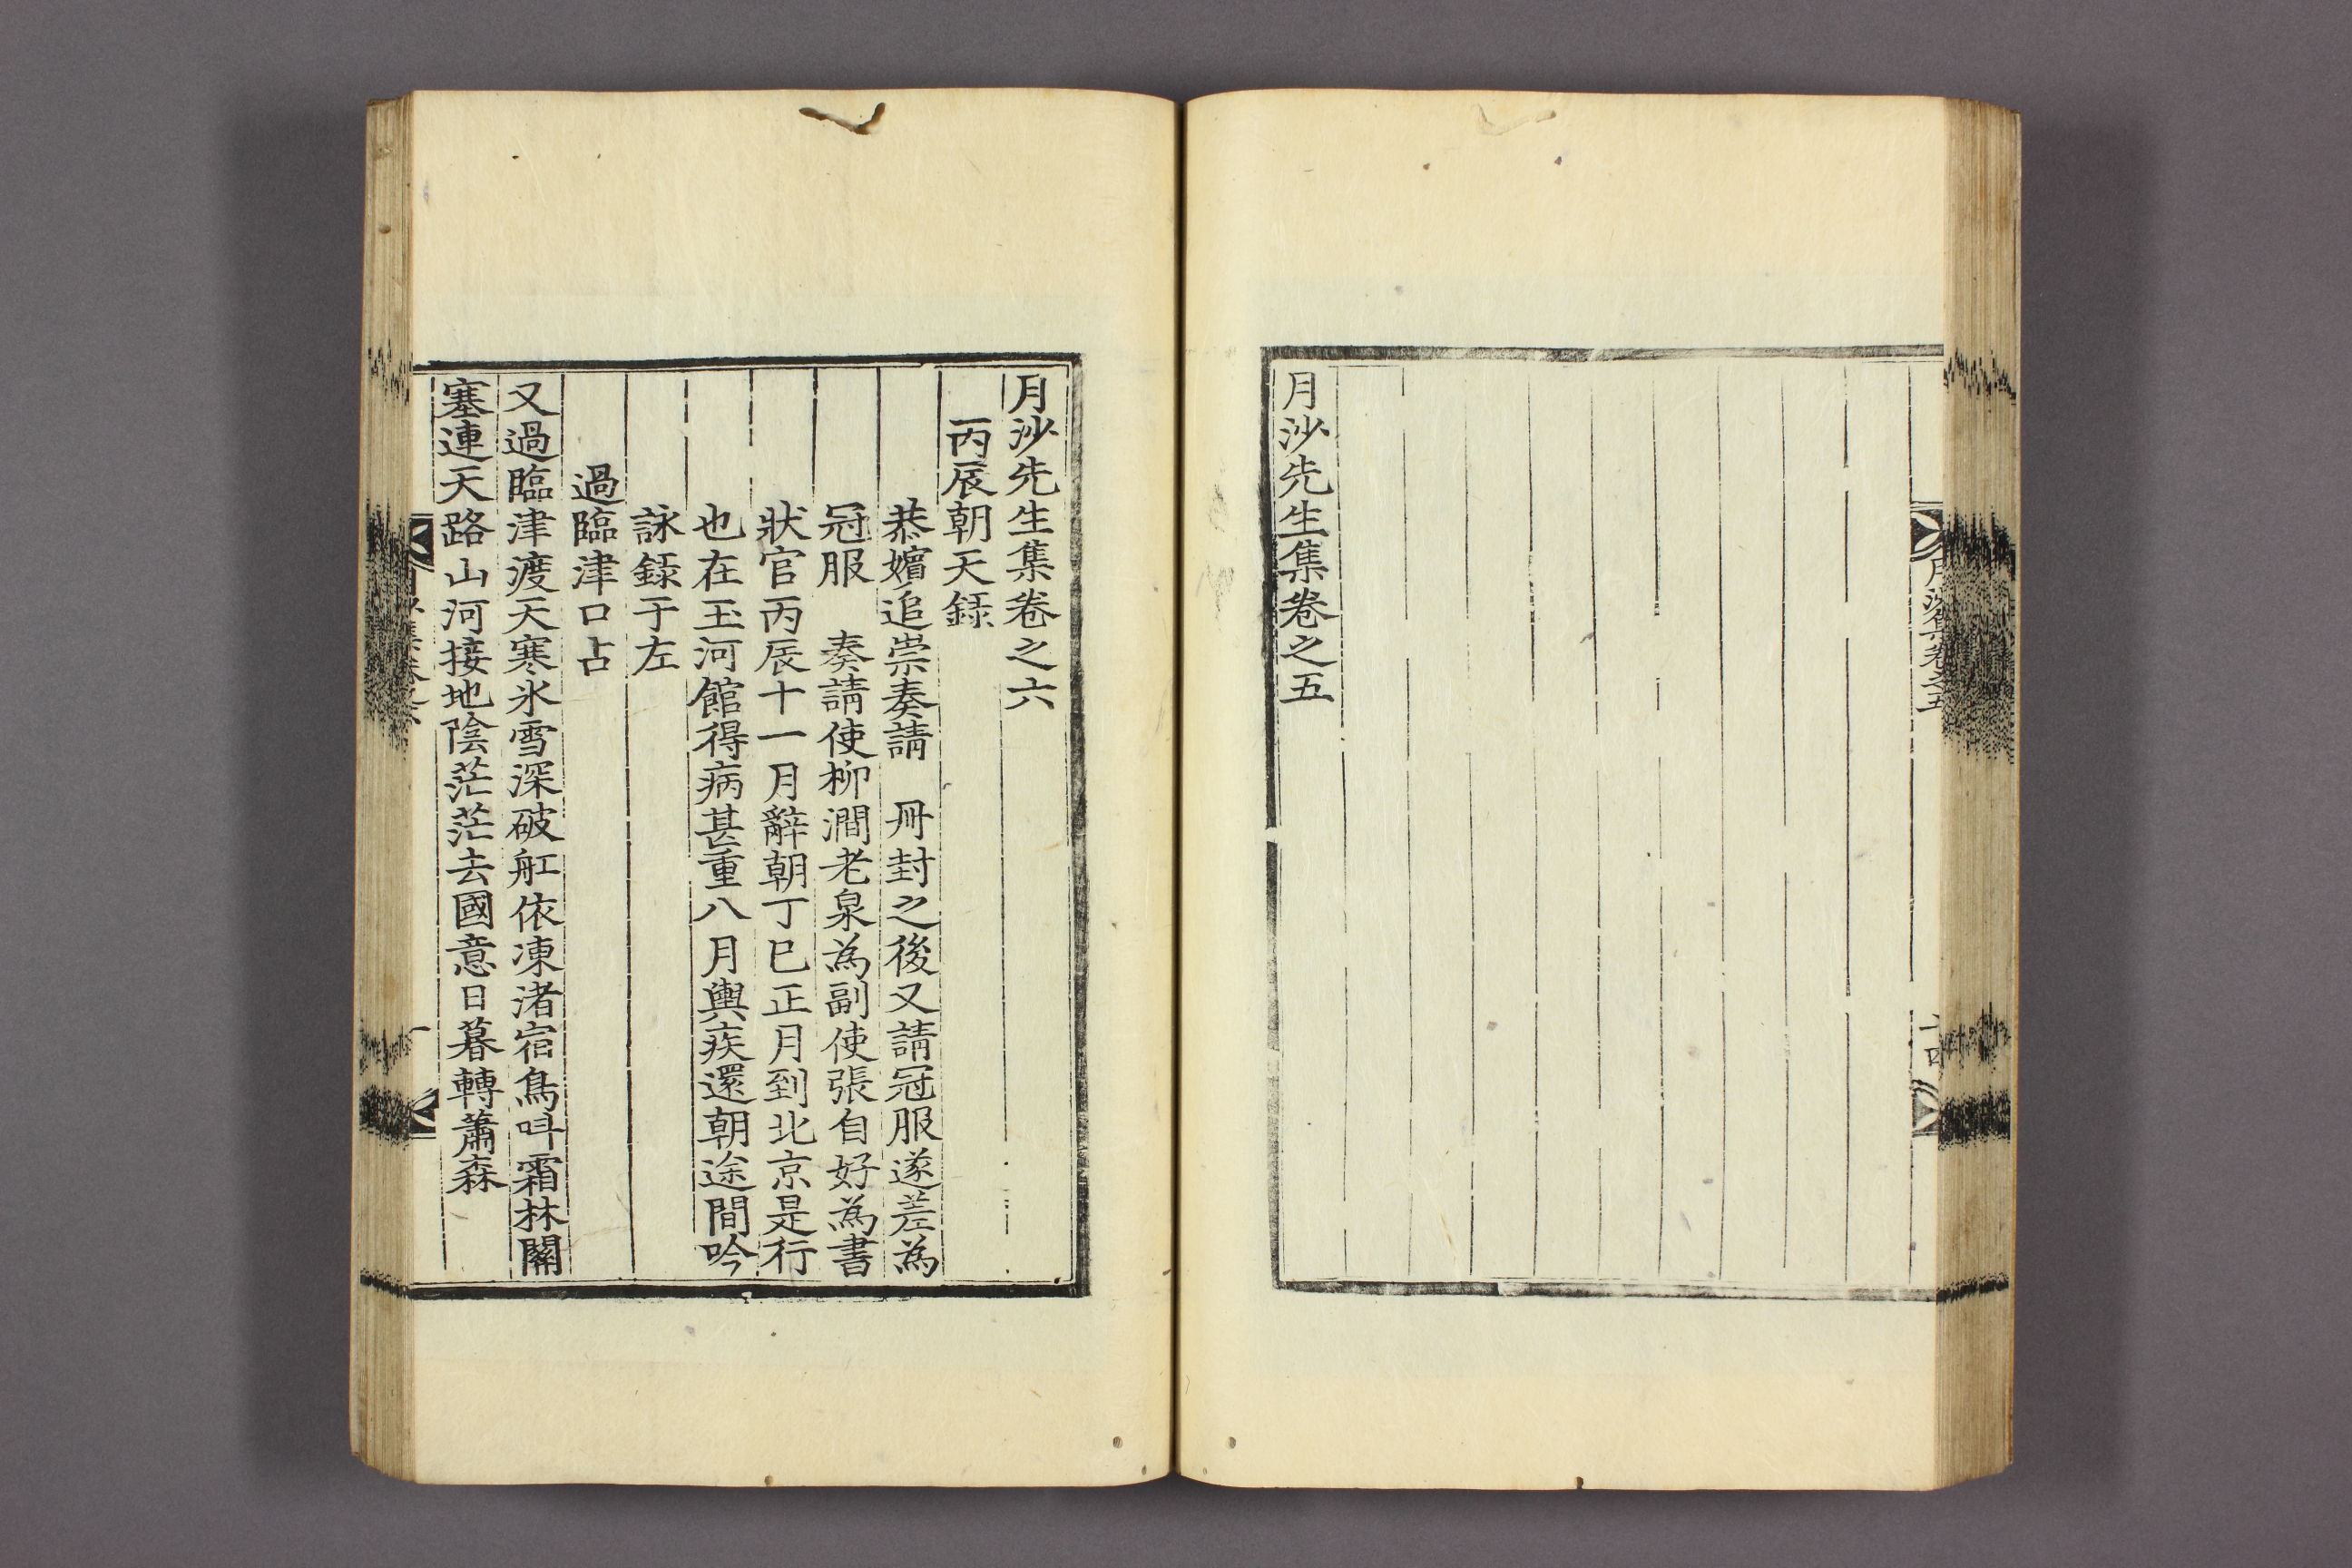 月沙集卷之五
二四
月沙先生集卷之五
月沙先生集卷之六
丙辰朝天錄
恭嬪追崇奏請 冊封之後又請冠服遂差為
冠服 奏請使柳澗老泉為副使張自好為書
狀官丙辰十一月辭朝丁巳正月到北京是行
也在玉河館得病甚重八月輿疾還朝途間吟
詠錄于左
過臨津口占
又過臨津渡天寒氷雪深破舡依凍渚宿鳥呌霜林關
塞連天路山河接地陰茫茫去國意日暮轉蕭森
一